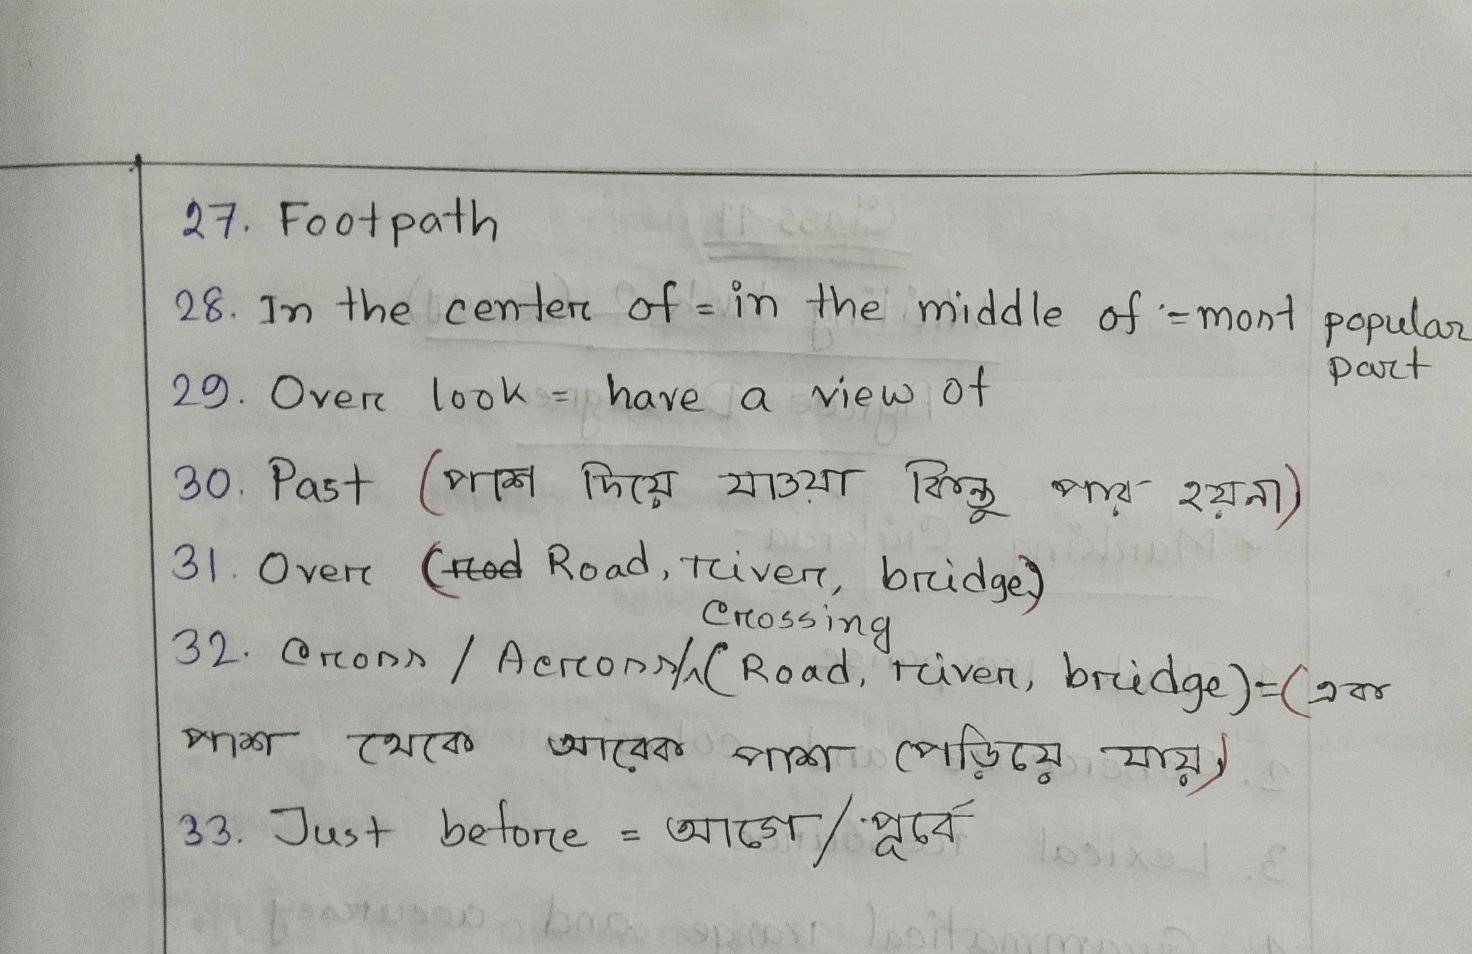 27. Footpath
28. In the center of = in the middle of = most popular
part
29. Over look = have a view of
30. Past (পাশ দিয়ে যাওয়া কিন্তু পার হয়না)
31. Over (rod Road, river, bridge)
crossing
32. Cross / Across/ (Road, river, bridge) = (এক
পাশ থেকে আরেক পাশ পেড়িয়ে যায়)
33. Just before = আগে/পূর্বে